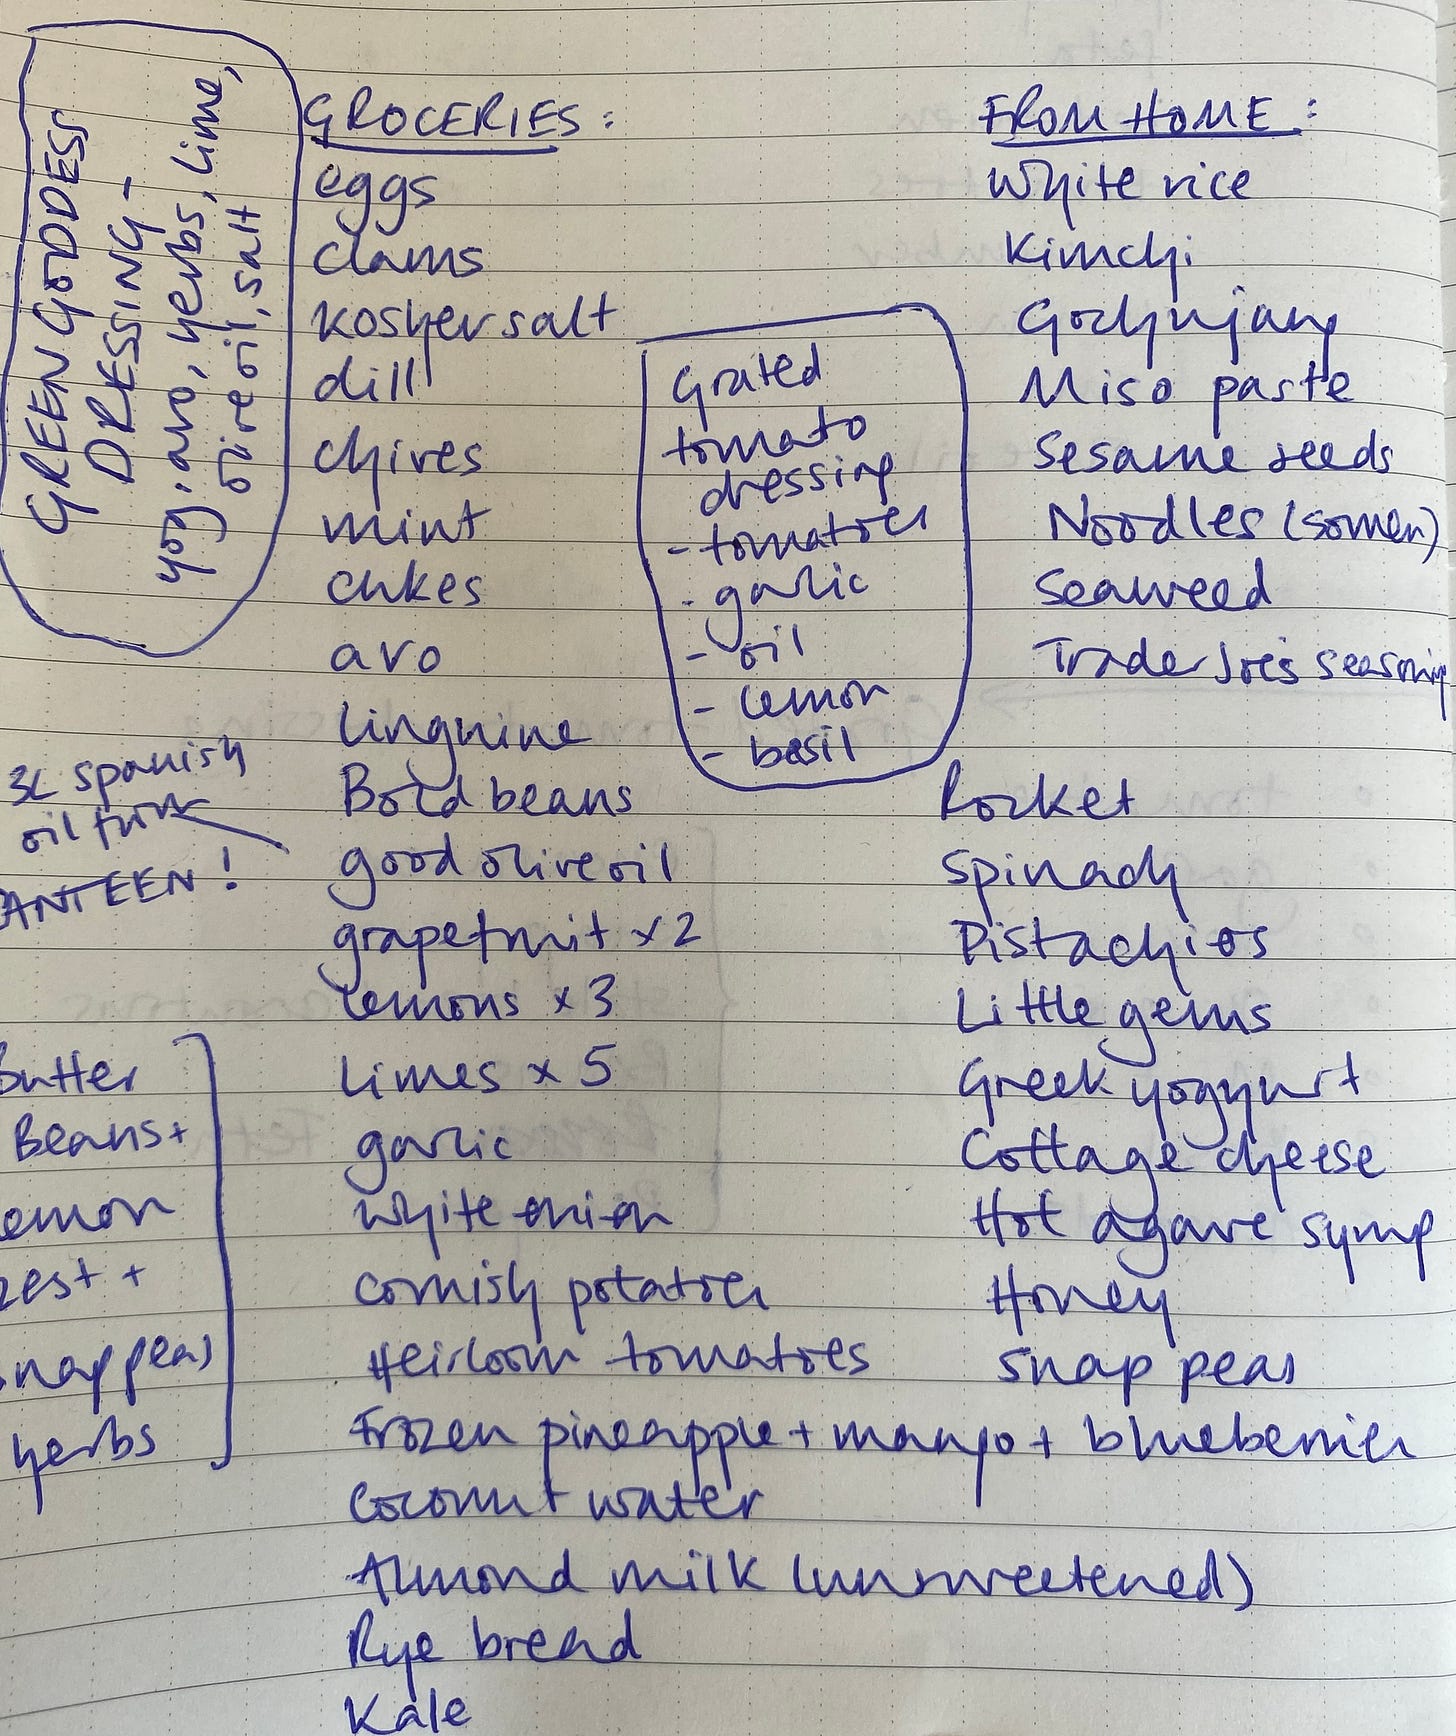 GREEN GODDESS
DRESSING -
yog, avo, herbs, lime,
olive oil, salt
GROCERIES:
eggs
clams
kosher salt
dill
chives
mint
cukes
avo
linguine
Bold beans
good olive oil
grapefruit x 2
lemons x 3
Limes x 5
garlic
white onion
cornish potatoes
Heirloom tomatoes
Frozen pineapple + mango + blueberries
Coconut water
Almond milk (unsweetened)
Rye bread
Kale
Grated
tomato
dressing
- tomatoes
- garlic
- oil
- lemon
- basil
FROM HOME:
White rice
Kimchi
Gochujang
Miso paste
Sesame seeds
Noodles (somen)
Seaweed
Trader Joe's seasoning
Rocket
Spinach
Pistachios
Little gems
Greek yoghurt
Cottage cheese
Hot agave syrup
Honey
Snap peas
spanish
oil from
ANTEEN!
Butter
Beans +
emon
zest +
nap peas
herbs